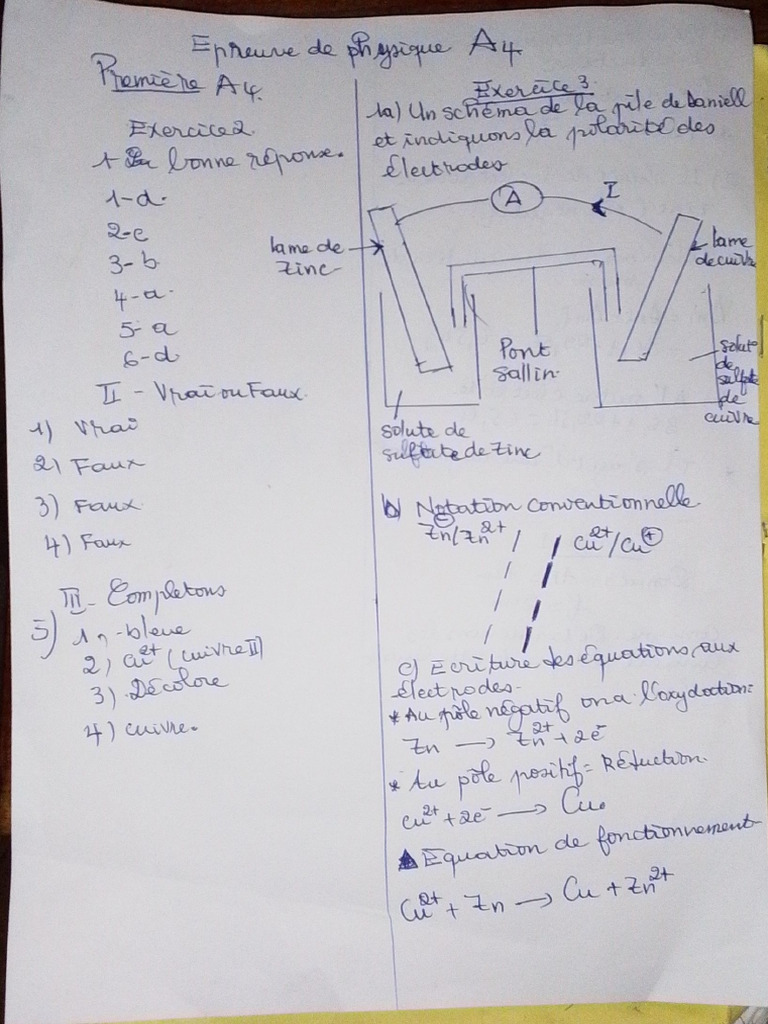 Epreuve de physique A4
Première A4
Exercice 2
1- La bonne réponse.
1-d.
2-c
3-b
4-a.
5-a
6-d
II - Vrai ou Faux.
1) Vrai
2) Faux
3) Faux
4) Faux
III - Completons
5) 1, -bleue
2) Cu2+ (cuivre II)
3) Décolore
4) cuivre.
Exercice 3
1a) Un schéma de la pile de Daniell
et indiquons la polarité des
électrodes
A
I
lame de
zinc
lame
de cuivre
Pont
sallin
solute de
sulfate de zinc
solute
de
sulfate
de
cuivre
b) Notation conventionnelle
⊖ Zn/Zn2+ / / Cu2+/Cu ⊕
c) Ecriture des équations aux
électrodes.
* Au pôle négatif on a l'oxydoction:
Zn → Zn2+ + 2e-
* Au pôle positif = Réduction.
Cu2+ + 2e- → Cu.
▲ Equation de fonctionnement
Cu2+ + Zn → Cu + Zn2+